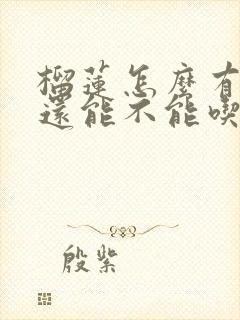 榴蓮怎麼有
還能不能喫
殷紫